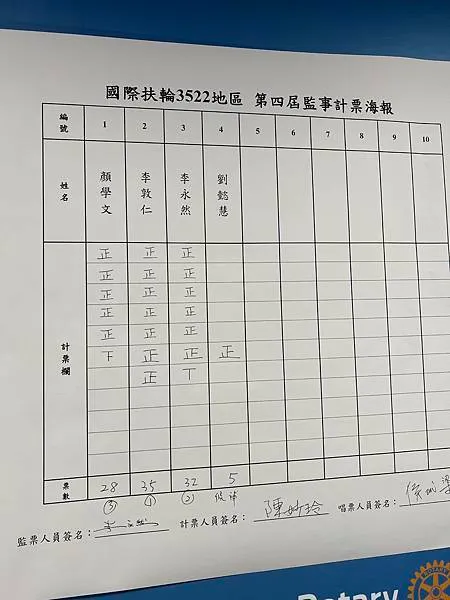 國際扶輪3522地區 第四屆監事計票海報
編號 1 2 3 4 5 6 7 8 9 10
姓名 顏學文 李敦仁 李永然 劉懿慧
計票欄
正 正 正
正 正 正
正 正 正
正 正 正
正 正 正
下 正 正 正
正 丅
票數 28 35 32 5
③ ① ② 候補
監票人員簽名： 計票人員簽名：陳妙玲 唱票人員簽名：
Rotary
ROTARY